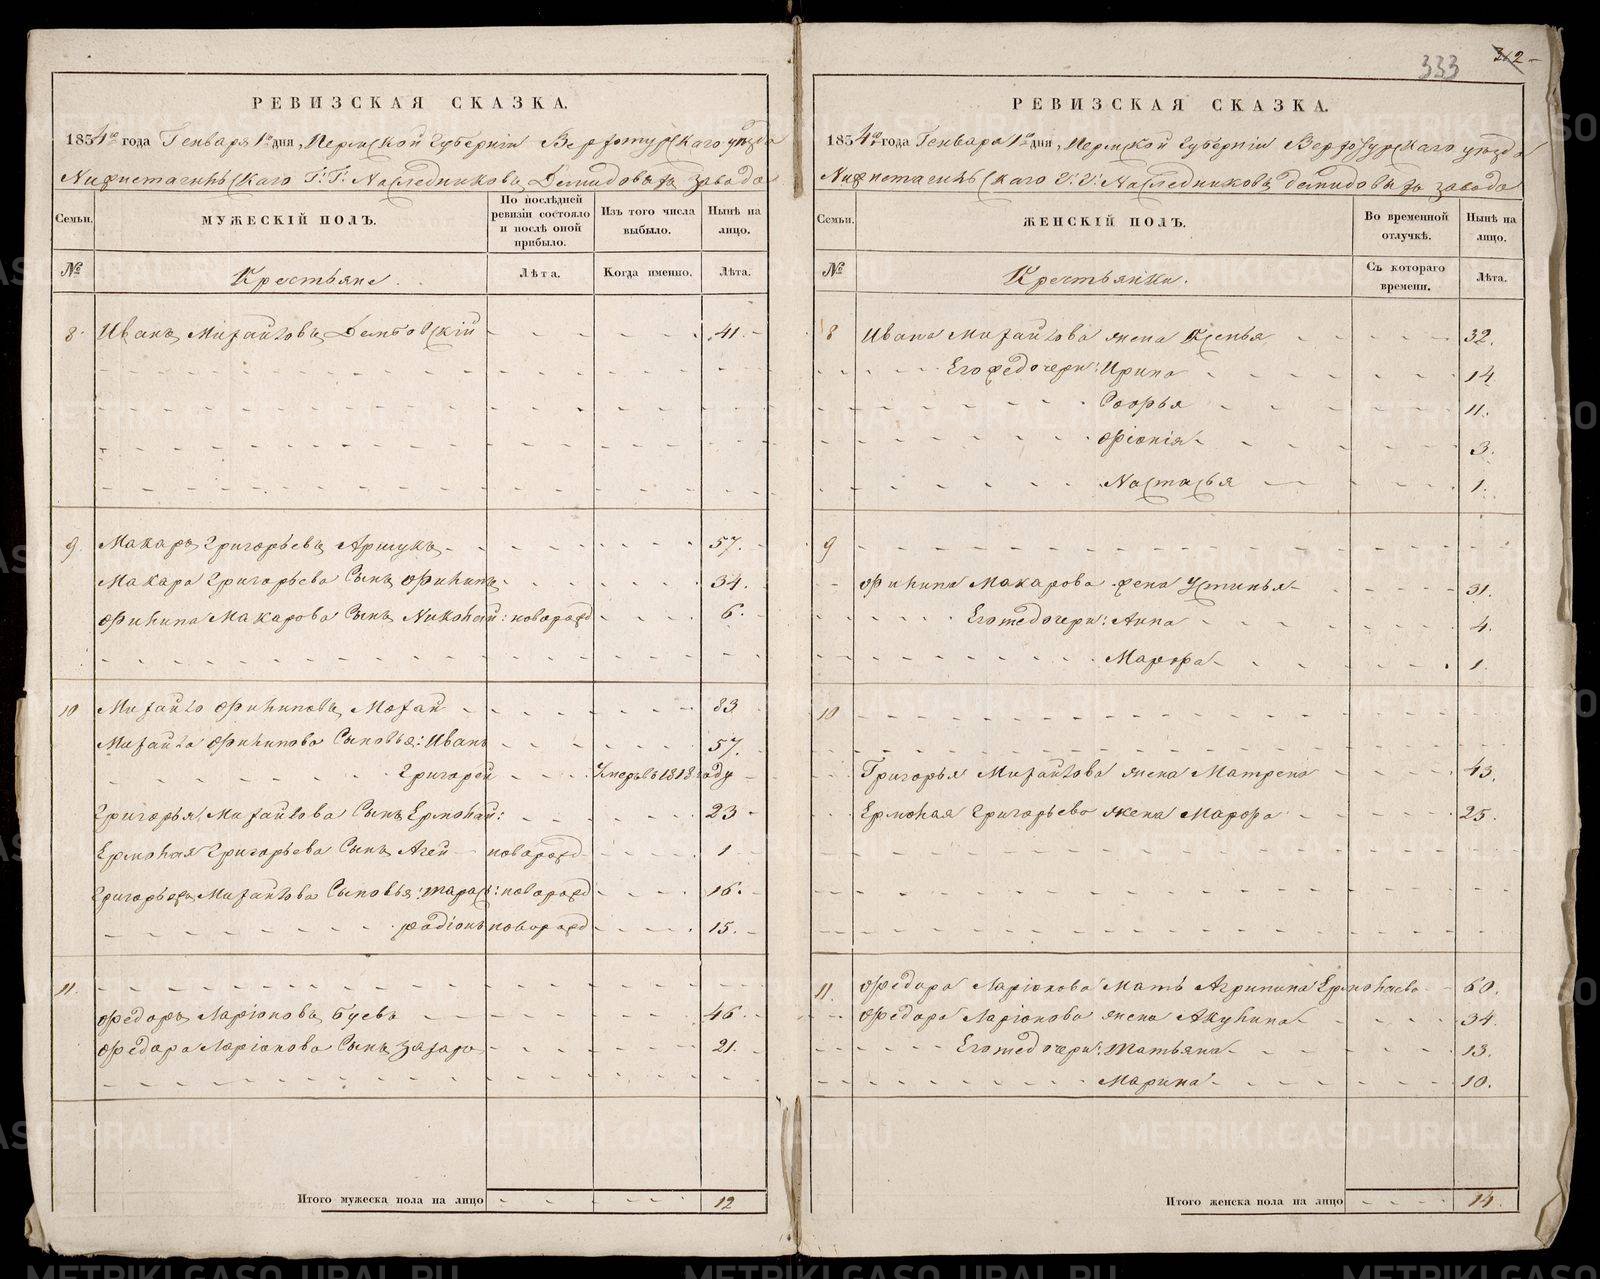 333
312
РЕВИЗСКАЯ СКАЗКА.
1834го года Генваря 1го дня, Пермской Губернiи Верхотурскаго уѣзда
Нижнетагильскаго Г: Г: Наслѣдниковъ Демидовыхъ завода
Семьи.
МУЖЕСКІЙ ПОЛЪ.
По послѣдней ревизіи состояло и послѣ оной прибыло.
Изъ того числа выбыло.
Нынѣ на лицо.
№
Крестьяне.
Лѣта.
Когда именно.
Лѣта.
8. Иванъ Михайловъ Дембовскiй 41.
9. Макаръ Григорьевъ 57.
Макара Григорьева Сынъ Филипъ 34.
Филипа Макарова Сынъ Николай: новорожд 6.
10 Михайло Филиповъ 83
Михайла Филипова Сыновья: Иванъ 57.
Григорей Умеръ въ 1818 году
Григорья Михайлова Сынъ Ермолай: 23
Ермолая Григорьева Сынъ Агей новорожд 1
Григорья Михайлова Сыновья: Тарасъ: новорожд 16.
Радiонъ новорожд 15.
11.
Федоръ Ларiоновъ Буевъ 46
Федора Ларiонова Сынъ Захаръ 21.
Итого мужеска пола на лицо 12
РЕВИЗСКАЯ СКАЗКА.
1834го года Генваря 1го дня, Пермской Губернiи Верхотурскаго уѣзда
Нижнетагильскаго Г: Г: Наслѣдниковъ Демидовыхъ завода
Семьи.
ЖЕНСКІЙ ПОЛЪ.
Во временной отлучкѣ.
Нынѣ на лицо.
№
Крестьянки.
Съ котораго времени.
Лѣта.
8 Ивана Михайлова жена Ксенья 32.
Его же дочери: Ирина 14
Софья 11.
Фiонiя 3.
Настасья 1.
9
Филипа Макарова жена Устинья 31.
Его же дочери: Анна 4.
Марфа 1.
10
Григорья Михайлова жена Матрена 43.
Ермолая Григорьева жена Марфа 25.
11. Федора Ларiонова Мать Агрипина Ермолаева 60.
Федора Ларiонова жена Акулина 34.
Его же дочери: Татьяна 13.
Марина 10.
Итого женска пола на лицо 14.
METRIKI.GASO-URAL.RU